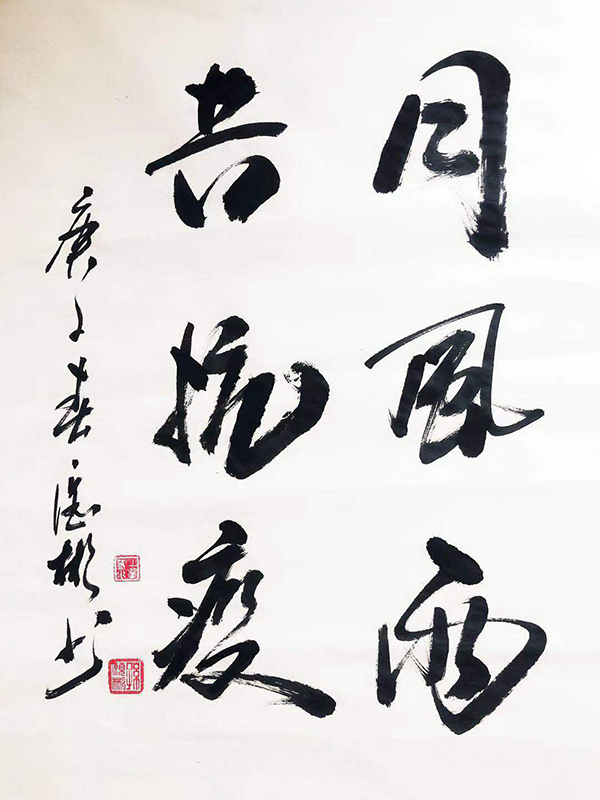 同风雨
共抗疫
庚子春彬书